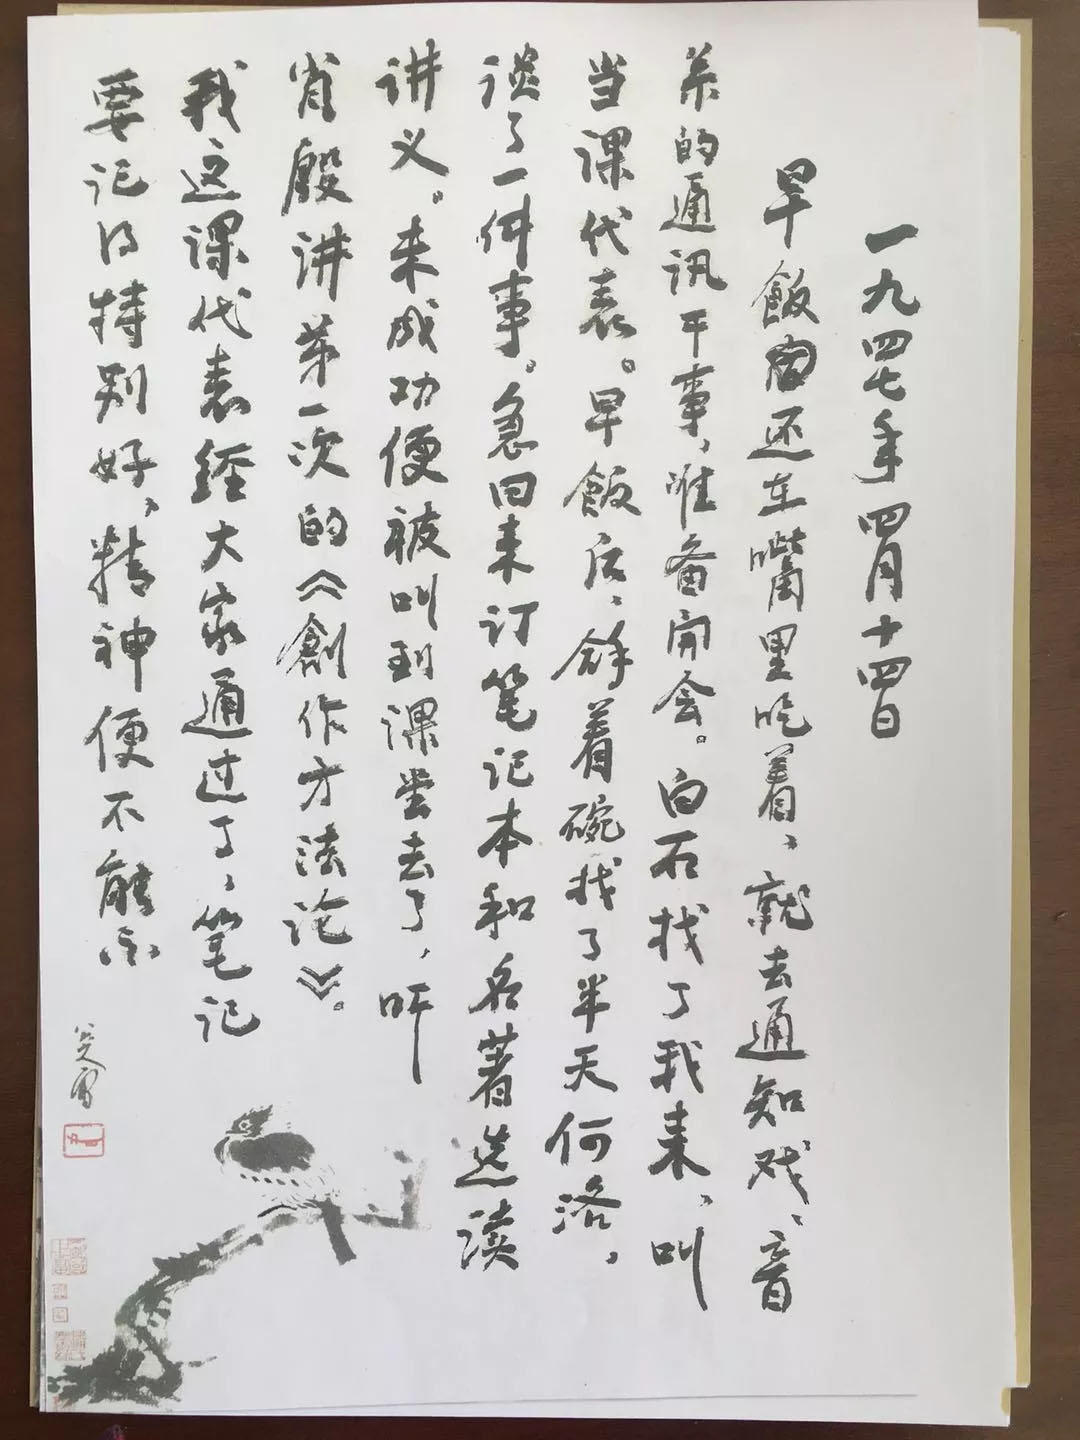 一九四七年四月十四日
早飯密还在嘴里吃着、就去通知戏、音
系的通讯干事，准备开会。白石找了我来，叫
当课代表。早飯后，餘着碗找了半天何洛，
谈了一件事。急回来订笔记本和名著选读
讲义。未成功便被叫到课堂去了，听
肖殷讲第一次的《創作方法论》。
我这课代表经大家通过了，笔记
要记得特别好，精神便不能不
八大山人